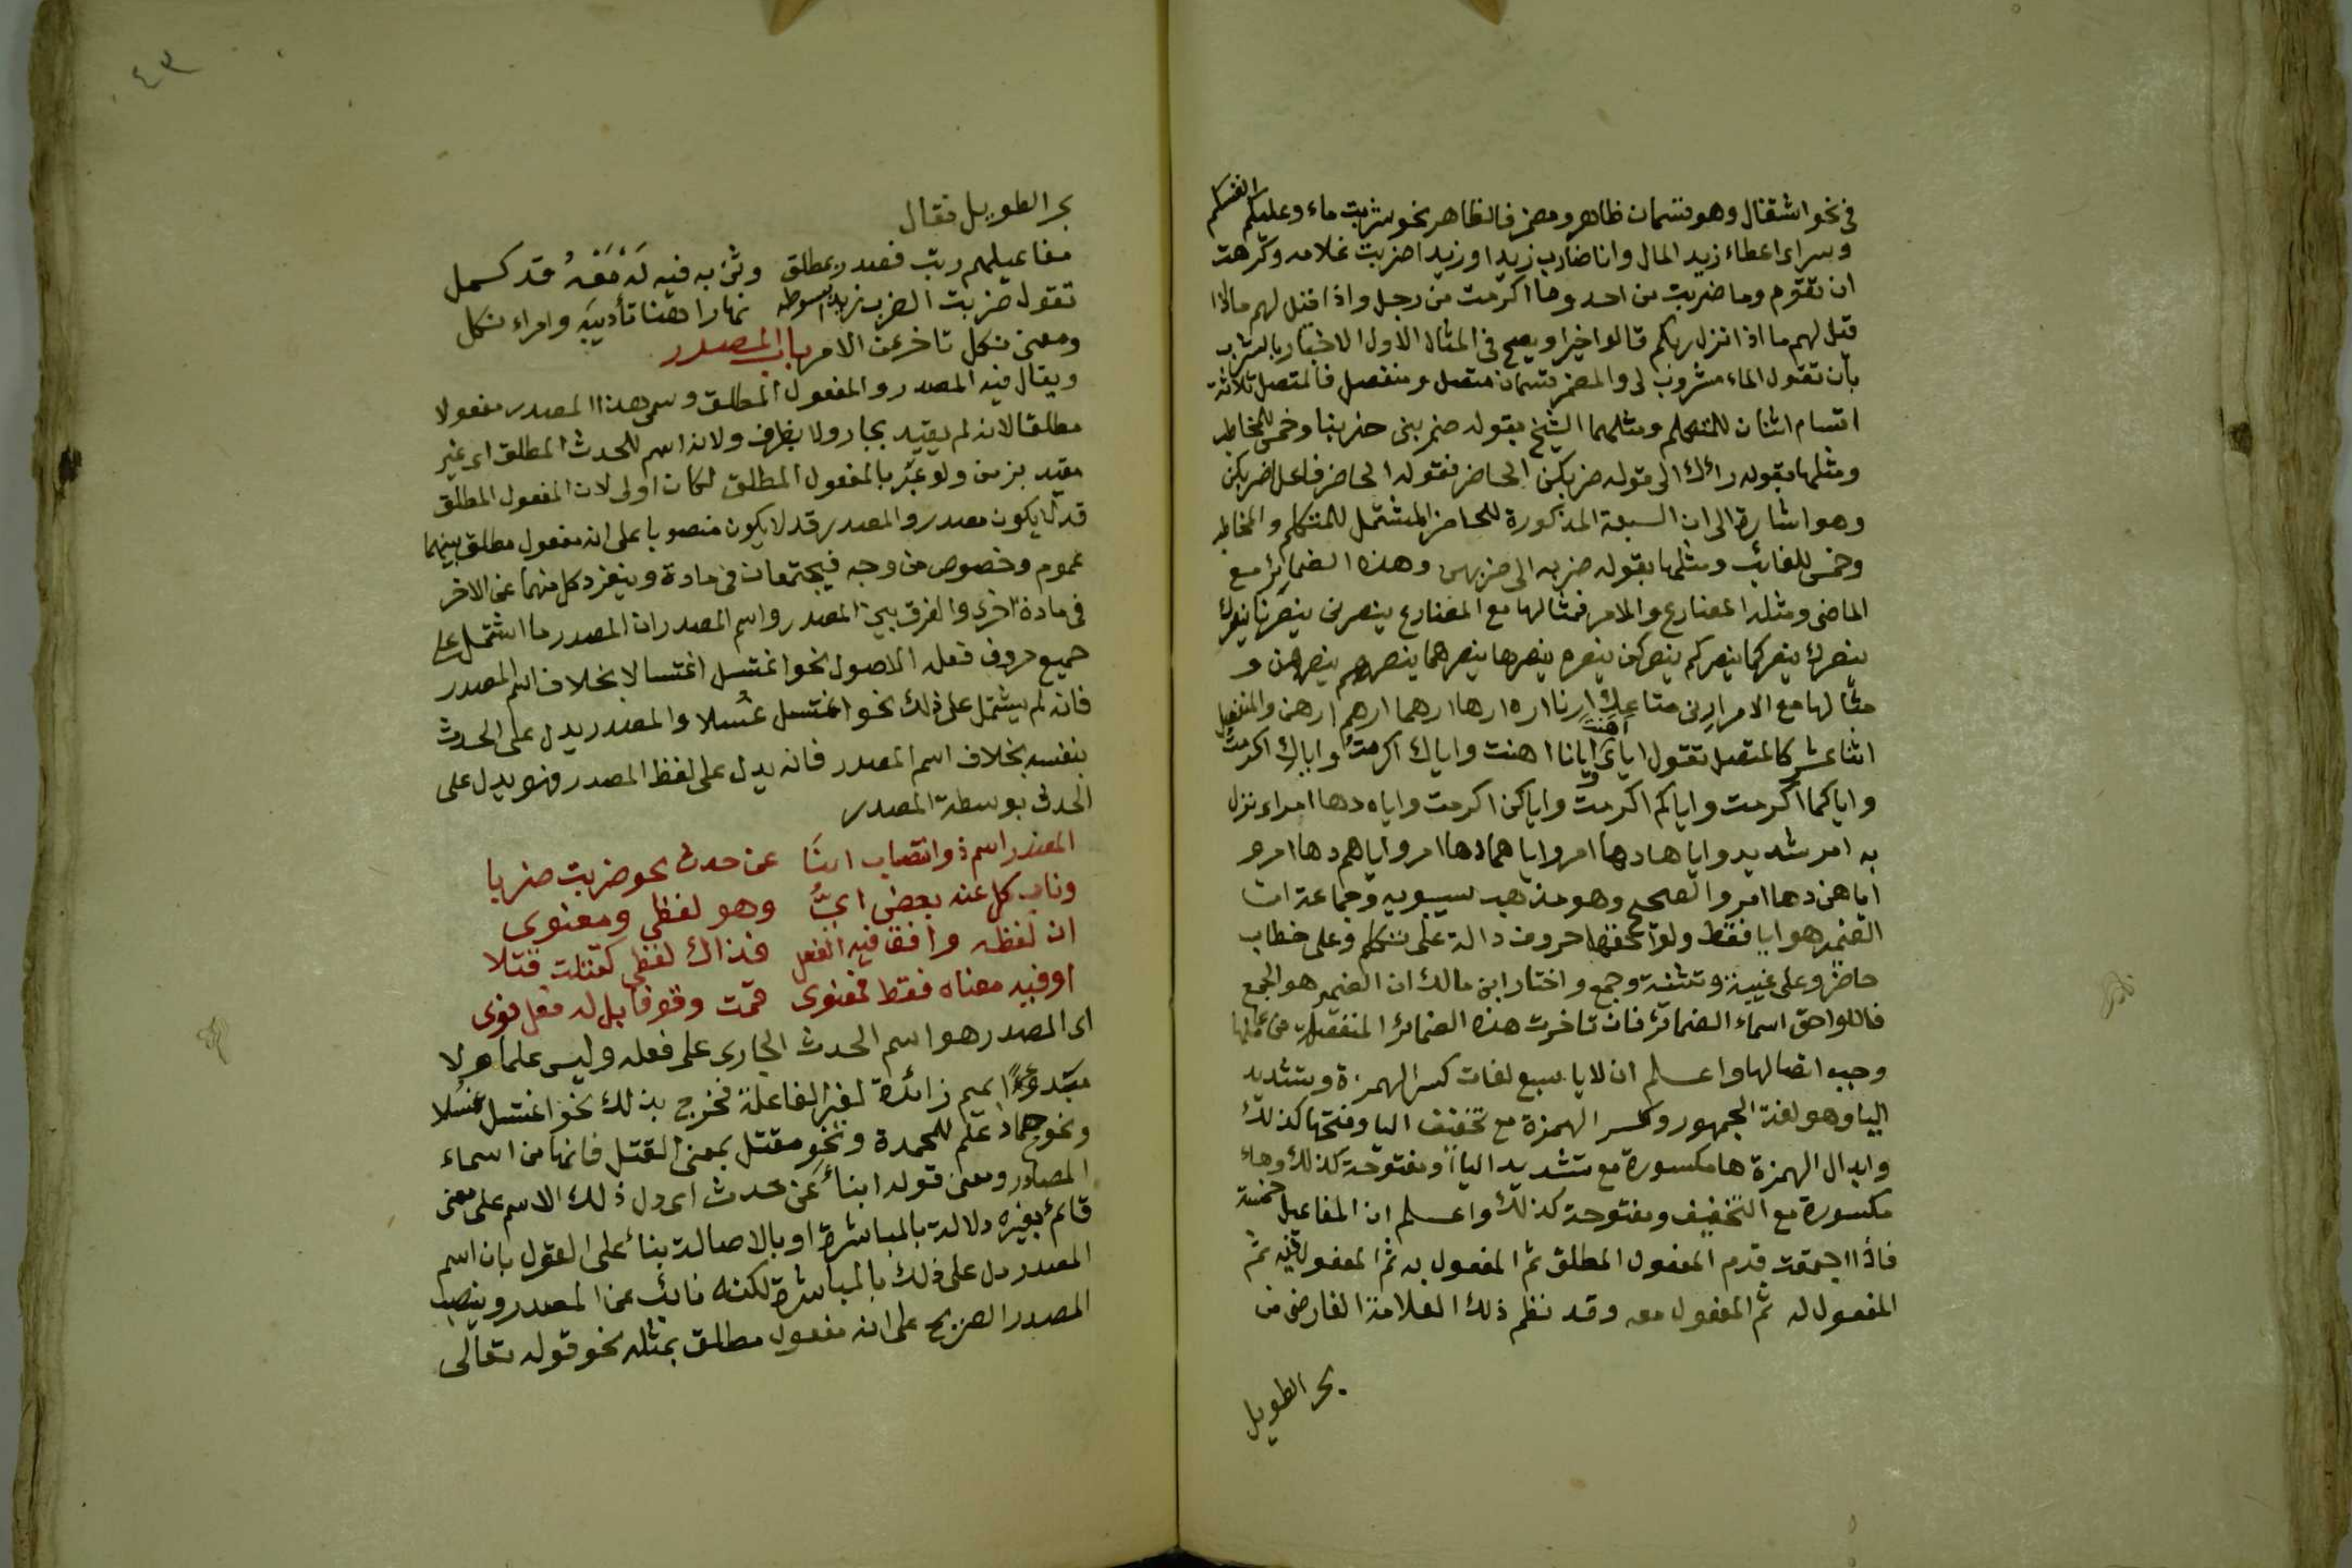 في نحو اشتغال وهو قسمان ظاهر ومضمر فالظاهر نحو شربت ماء وعليكم انفسكم
وسراى اعطاء زيد المال وانا ضارب زيدا او زيدا ضربت غلامه وكرهت
ان تقوم وما ضربت من احد وما اكرمت من رجل واذا قيل لهم ماذا
قيل لهم ماذا انزل ربكم قالوا خيرا ويصح في المثال الاول الاخبار بالشرب
بأن تقول الماء مشروب لى والمضمر قسمان متصل ومنفصل فالمتصل ثلاثة
اقسام اثنان للمتكلم ومثلهما الشيخ بقوله ضربنى ضربنا وخمس للمخاطب
ومثلها بقوله رائك الى قوله ضربكن الحاضر فقوله الحاضر فاعل ضربكن
وهو اشارة الى ان السبعة المذكورة للحاضر المشتمل للمتكلم والمخاطب
وخمس للغائب ومثلها بقوله ضربه الى ضربهن وهذه الضمائر مع
الماضى ومثله المضارع والامر فمثالها مع المضارع ينصرنى ينصرنا ينصرك
ينصرك ينصركما ينصركم ينصركن ينصره ينصرها ينصرهما ينصرهم ينصرهن و
مثالها مع الامر ارنى متاعك ارنا اره ارها ارهما ارهم ارهن والمنفصل
اثنا عشر كالمتصل تقول اياى اهنت وايانا اهنت واياك اكرمت واياك اكرمت
واياكما اكرمت واياكم اكرمت واياكن اكرمت واياه دها امر اى نزل
به امر شديد واياها دها امر واياهما دها امر واياهم دها امر و
اياهن دها امر والصحيح وهو مذهب سيبويه وجماعة ان
الضمير هو ايا فقط ولواحقها حروف دالة على تكلم وعلى خطاب
حاضر وعلى غيبة وتثنية وجمع واختار ابن مالك ان الضمير هو الجمع
فاللواحق اسماء الضمائر فان تاخرت هذه الضمائر المنفصلة عن عاملها
وجب اتصالها واعلم ان لايا سبع لغات كسر الهمزة وتشديد
اليا وهو لغة الجمهور وكسر الهمزة مع تخفيف اليا وفتحها كذلك
وابدال الهمزة ها مكسورة مع تشديد اليا ومفتوحة كذلك وهاء
مكسورة مع التخفيف ومفتوحة كذلك واعلم ان المفاعيل خمسة
فاذا اجتمعت قدم المفعول المطلق ثم المفعول به ثم المفعول فيه ثم
المفعول له ثم المفعول معه وقد نظم ذلك العلامة الفارضى من
بحر الطويل
٤٣
بحر الطويل فقال
مفاعيلهم رتب فصدر بمطلق وثن به فيه له معه قد كمل
تقول ضربت الضرب زيدا بسوطه نهارا هنا تأديبه وامراء نكل
ومعنى نكل تاخر عن الامر باب المصدر
ويقال فيه المصدر والمفعول المطلق وسمى هذا المصدر مفعولا
مطلقا لانه لم يقيد بجار ولا بظرف ولانه اسم للحدث المطلق اى غير
مقيد بزمن ولو عبر بالمفعول المطلق لكان اولى لان المفعول المطلق
قد لا يكون مصدر والمصدر قد لا يكون منصوبا على انه مفعول مطلق بينهما
عموم وخصوص من وجه فيجتمعان في مادة وينفرد كل منهما عن الاخر
في مادة اخرى والفرق بين المصدر واسم المصدر ان المصدر ما اشتمل على
جميع حروف فعله الاصول نحو اغتسل اغتسالا بخلاف اسم المصدر
فانه لم يشتمل على ذلك نحو اغتسل غسلا والمصدر يدل على الحدث
بنفسه بخلاف اسم المصدر فانه يدل على لفظ المصدر فهو يدل على
الحدث بوسطة المصدر
المصدر اسم ذو انتصاب انبا عن حدث نحو ضربت ضربا
وناب كل عنه بعض اى وهو لفظى ومعنوى
ان لفظه وافق فيه الفعل فذاك لفظى كقتلت قتلا
او فيه معناه فقط فمعنوى قمت وقوفا بل له فعل قوى
اى المصدر هو اسم الحدث الجارى على فعله وليس علما ولا
مبتدءا بميم زائدة لغير المفاعلة فخرج بذلك نحو اغتسل غسلا
ونحو حماد علم للمحمدة ونحو مقتل بمعنى القتل فانها من اسماء
المصادر ومعنى قوله ابنا عن حدث اى دل ذلك الاسم على معنى
قائم بغيره دلالة بالمباشرة او بالاصالة بناء على القول بان اسم
المصدر دل على ذلك بالمباشرة لكنه نائب عن المصدر وينصب
المصدر الصريح على انه مفعول مطلق بمثله نحو قوله تعالى